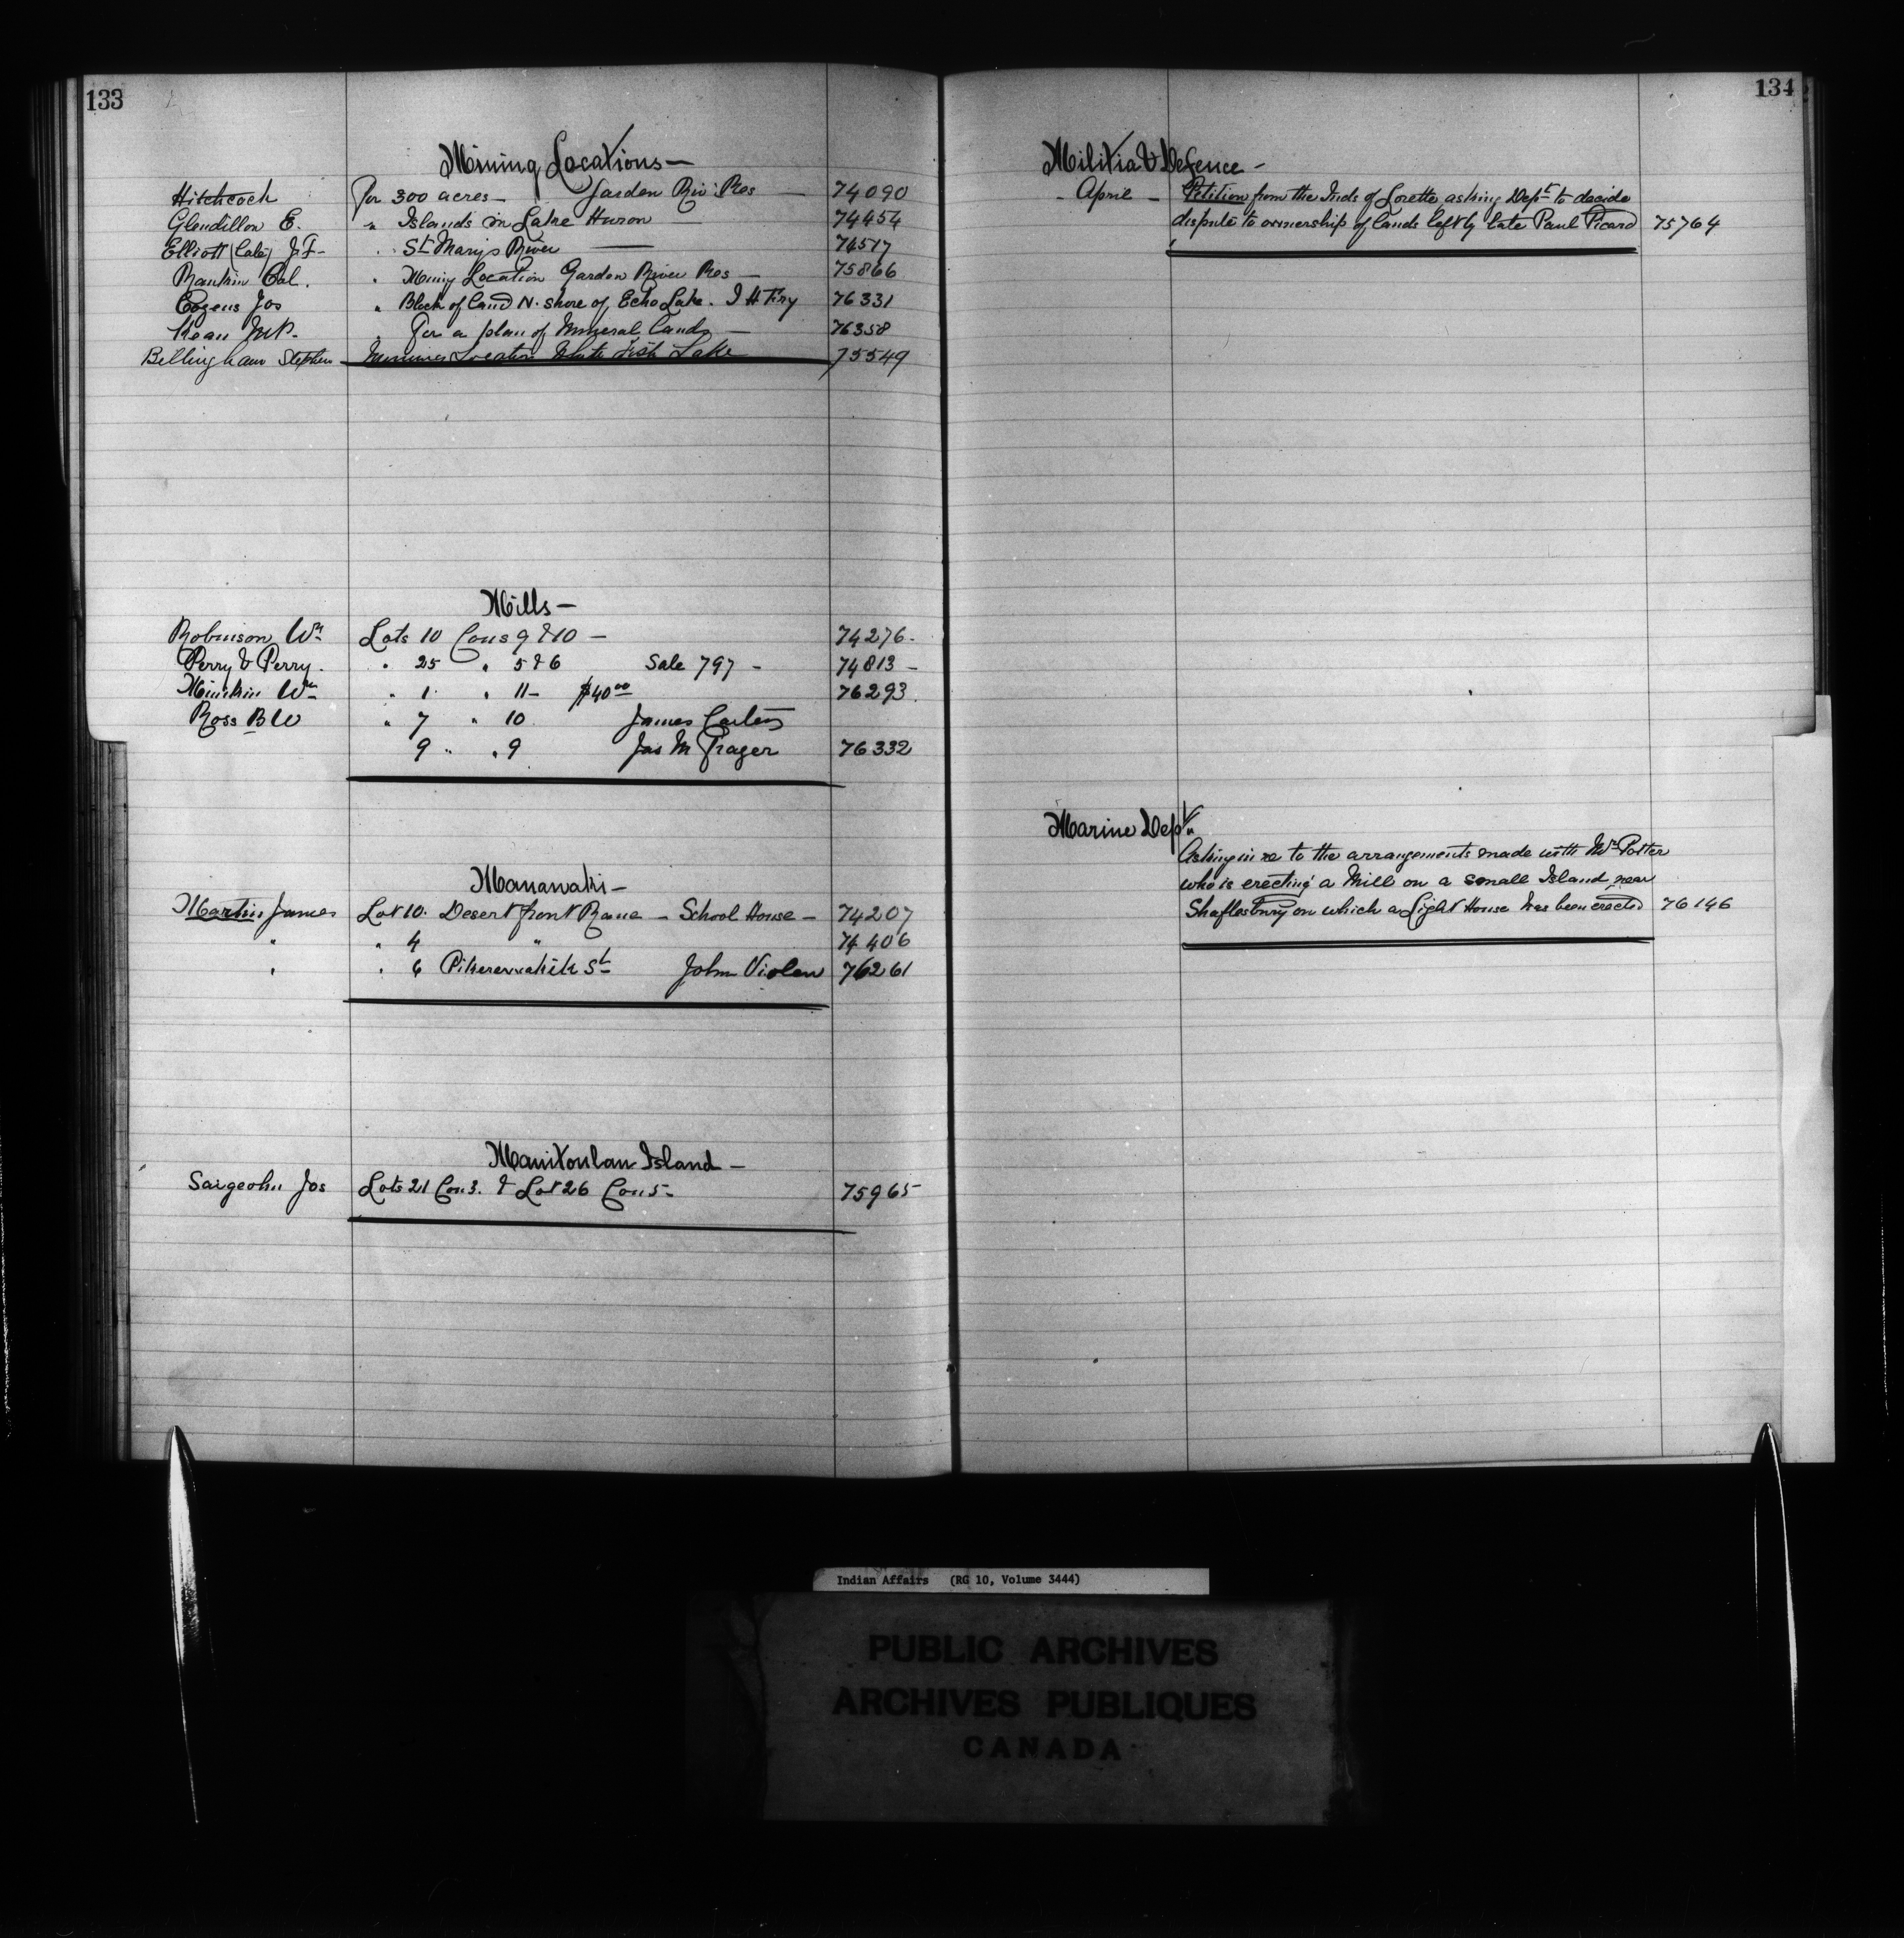 133
Mining Locations —
Hitchcock For 300 acres — Garden Riv. Res — 74090
Glendillon E. " Islands in Lake Huron 74454
Elliott (Cate) J. F — " St Marys River — 74517
Rankin Col. " Mining Location Garden River Res — 75866
Cozens Jos " Block of land N. shore of Echo Lake. 76331
Kean " For a plan of Mineral Lands — 76358
Bellingham Stephen Mining Location White Fish Lake 75549
Mills —
Robinson Wm Lots 10 Cons 9 & 10 — 74276.
Perry & Perry. " 25 " 5 & 6 Sale 797 — 74813 —
Wm " 1 " 11 — $40 00 76293.
Ross B W " 7 " 10 James
9 " " 9 Jas M 76332
Manawaki —
Martin James Lot 10. Desert front — School House — 74207
" " 4 " 74406
" " 6 St John 76261
Manitoulan Island —
Jos Lots 21 Con 3. & Lot 26 Con 5 — 75965
134
Militia & Defence —
— April — Petition from the Inds of Lorette asking Dept to decide
dispute to ownership of lands left by late Paul Picard 75764
Marine Dept.
Asking in re to the arrangements made with Mr Potter
who is erecting a Mill on a small Island near
Shaftesbury on which a Light House has been erected 76146
Indian Affairs (RG 10, Volume 3444)
PUBLIC ARCHIVES
ARCHIVES PUBLIQUES
CANADA